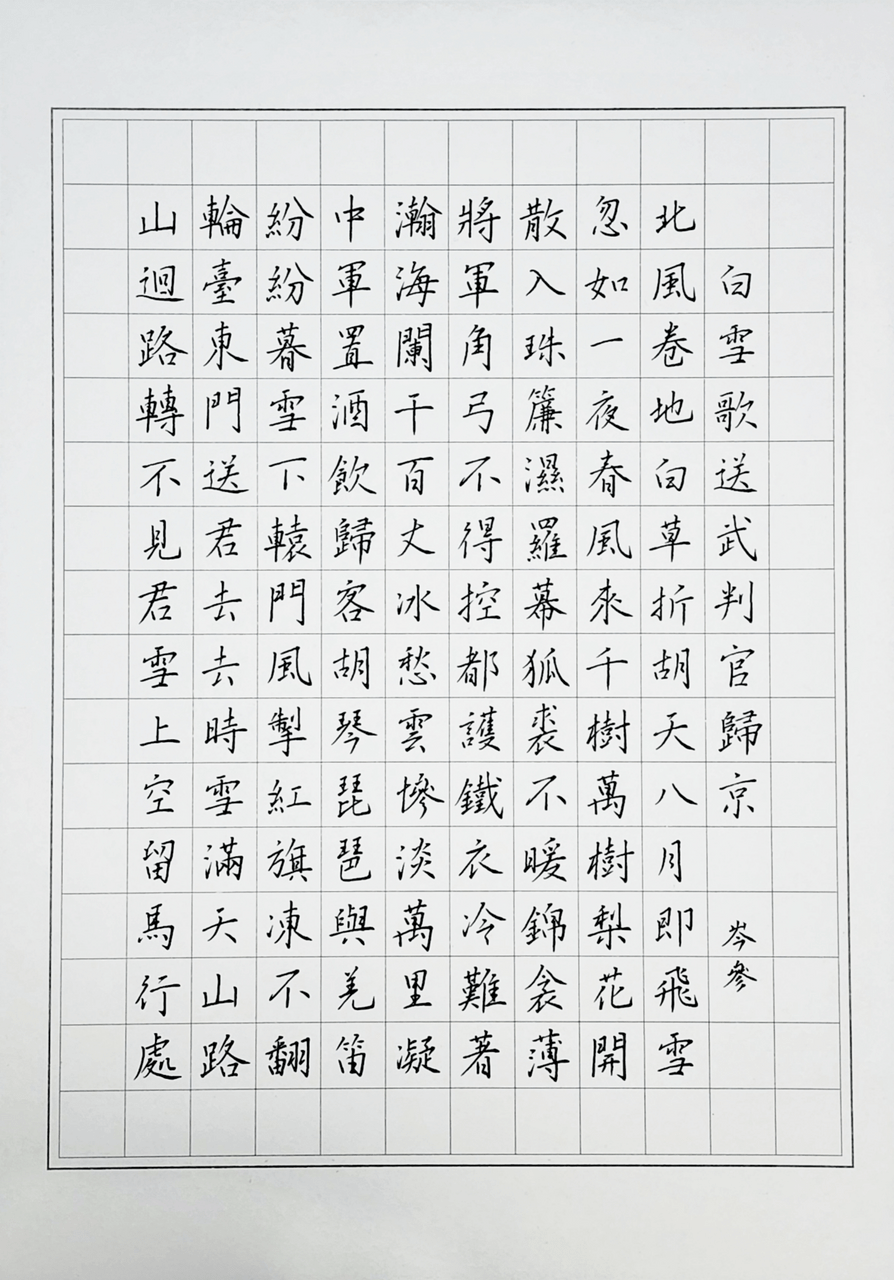 白雪歌送武判官歸京 岑參
北風卷地白草折胡天八月即飛雪
忽如一夜春風來千樹萬樹梨花開
散入珠簾濕羅幕狐裘不暖錦衾薄
將軍角弓不得控都護鐵衣冷難著
瀚海闌干百丈冰愁雲慘淡萬里凝
中軍置酒飲歸客胡琴琵琶與羌笛
紛紛暮雪下轅門風掣紅旗凍不翻
輪臺東門送君去去時雪滿天山路
山迴路轉不見君雪上空留馬行處